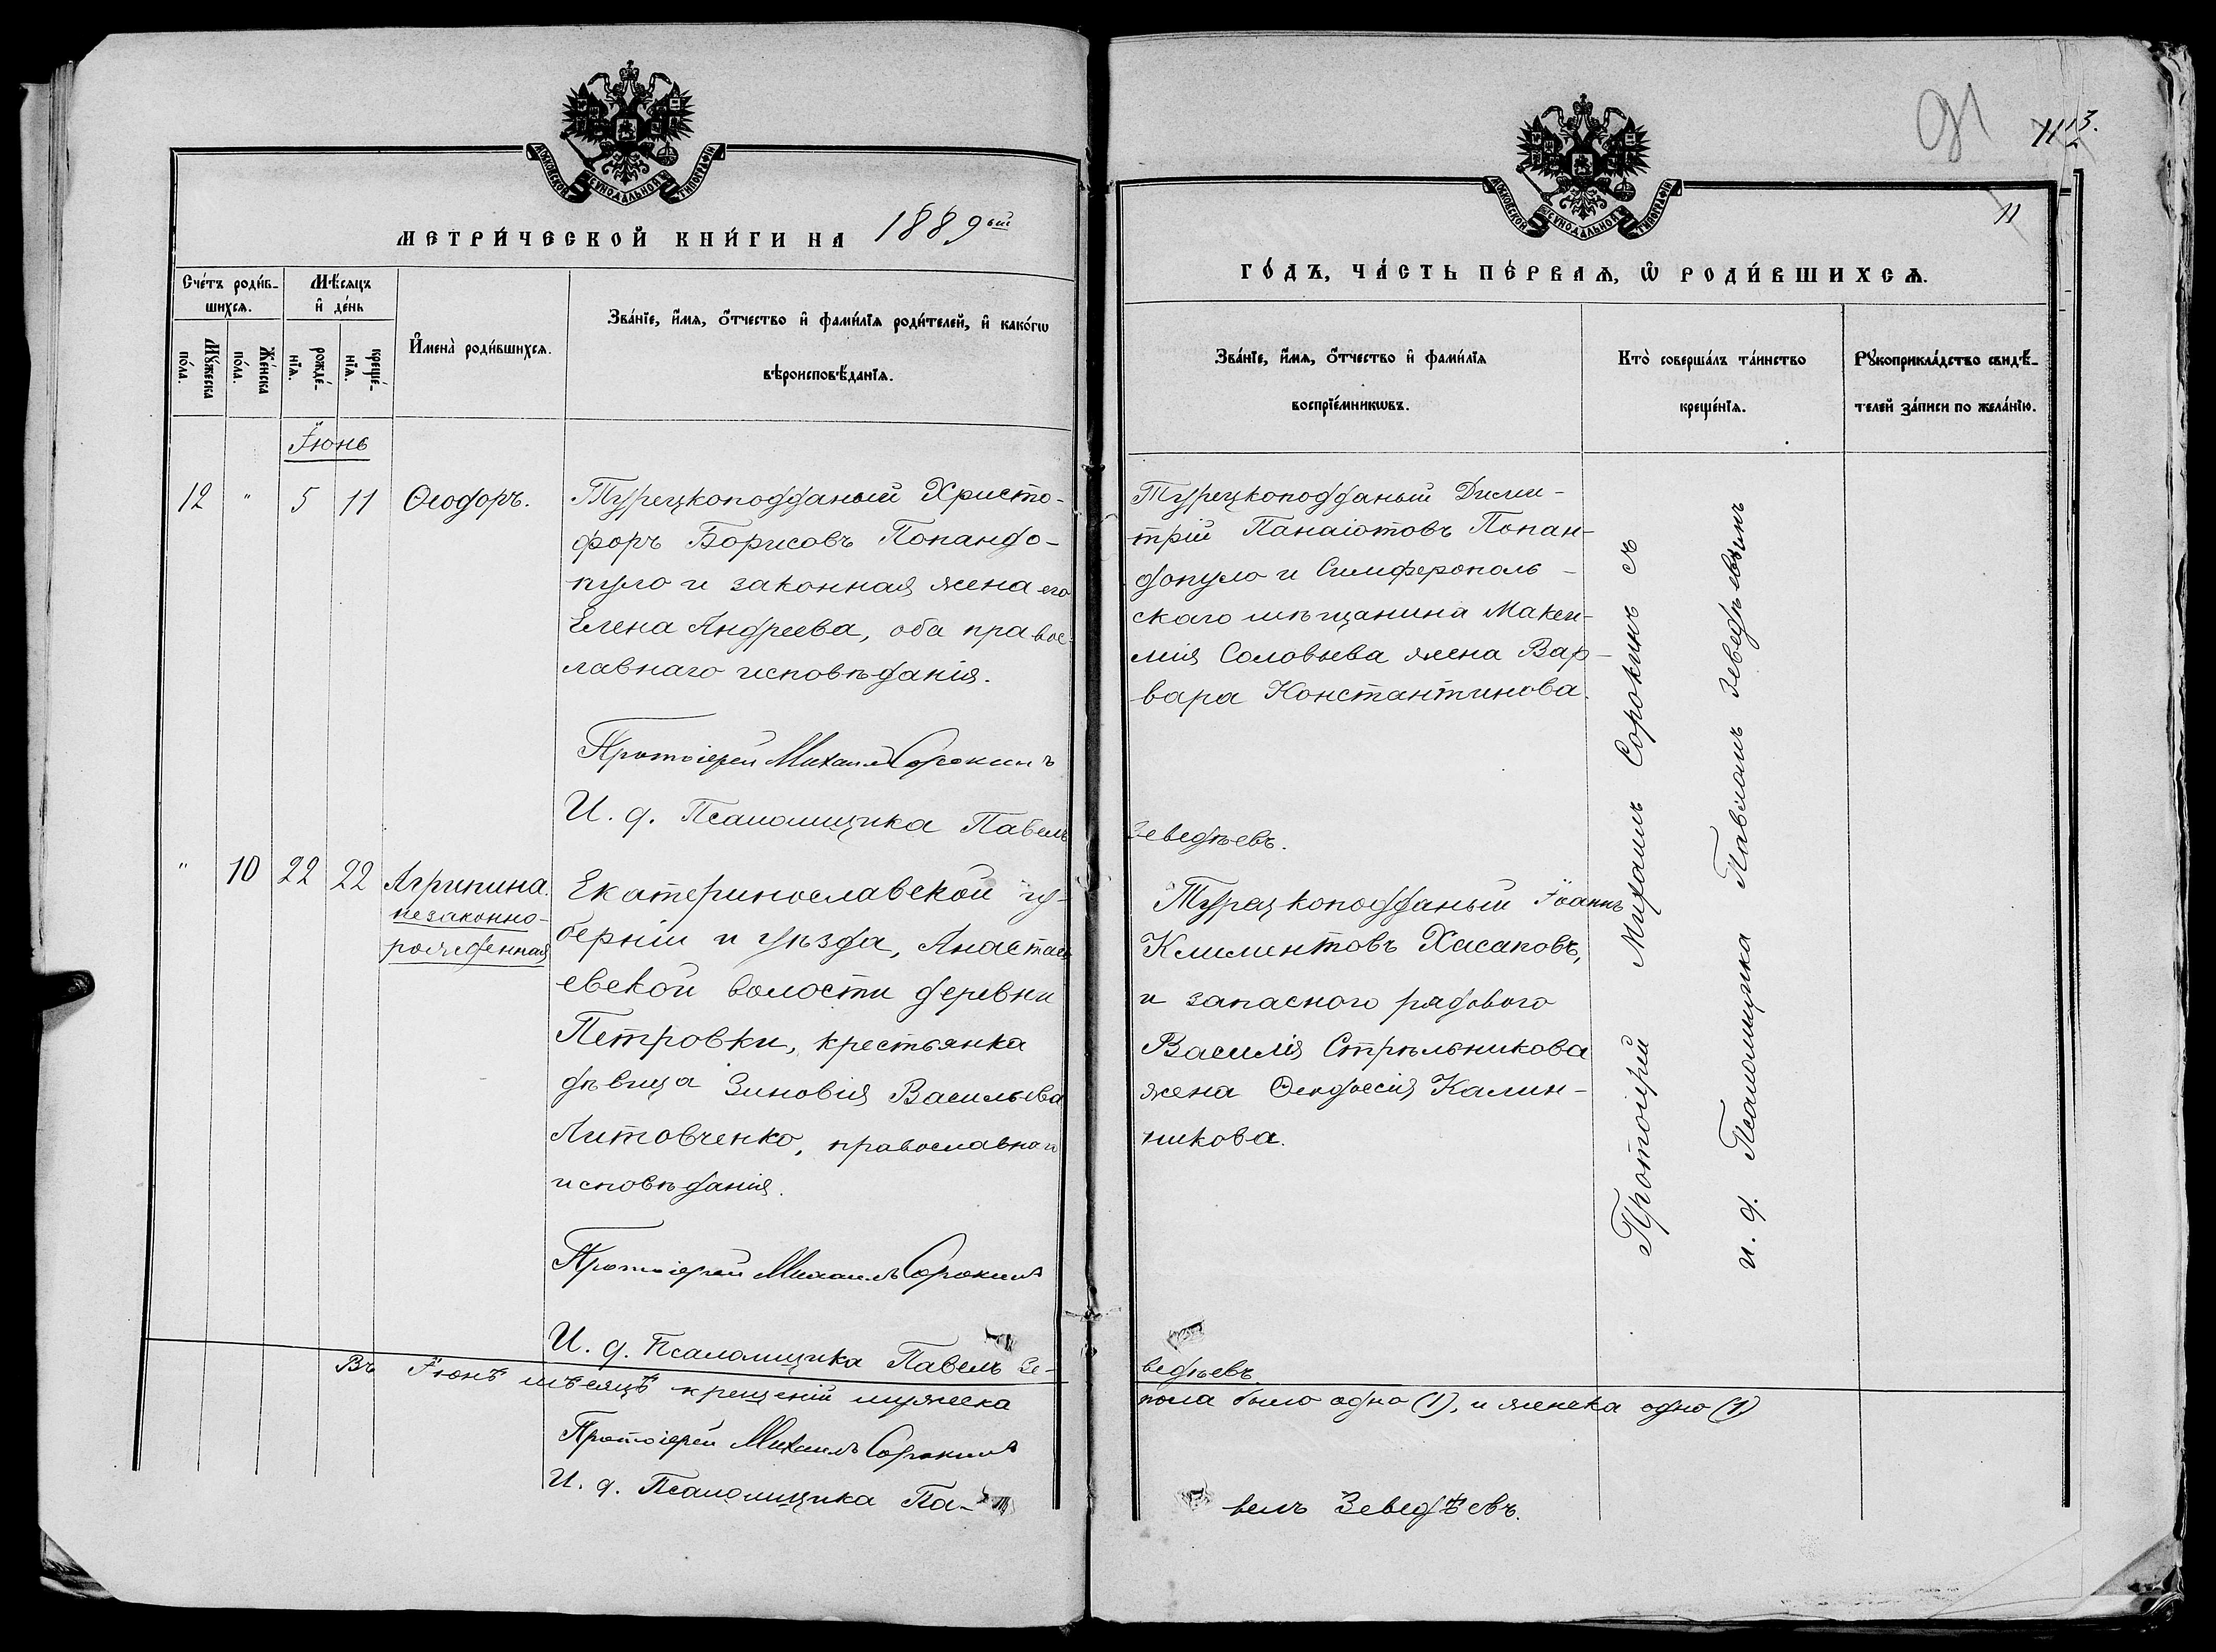 МОСКОВСКОЙ СѴНОДАЛЬНОЙ ТИПОГРАФІИ
МЕТРИ́ЧЕСКОЙ КНИ́ГИ НА 1889ый
Сче́тъ роди́в-
шихсѧ.
Мѣ́сяцъ
и҆ де́нь
Мꙋ́жеска
по́ла.
Же́нска
по́ла.
рожде́-
нїѧ.
креще́-
нїѧ.
И҆мена̀ роди́вшихсѧ.
Зва́нїе, и҆́мѧ, ѻ҆́тчество и҆ фами́лїѧ роди́телей, и҆ како́гѡ
вѣроисповѣ́данїѧ.
Іюнь
12 " 5 11 Ѳеодоръ.
Турецкоподданый Христо-
форъ Борисовъ Попандо-
пуло и законная жена его
Елена Андреева, оба правос-
лавнаго исповѣданія.
Протоіерей Михаилъ Сорокинъ
И. д. Псаломщика Павелъ
" 10 22 22 Агрипина.
незаконно-
рожденная
Екатеринославской гу-
берніи и уѣзда, Анастась
евской волости деревни
Петровки, крестьянка
дѣвица Зиновія Васильева
Литовченко, православнаго
исповѣданія.
Протоіерей Михаилъ Сорокинъ
И. д. Псаломщика Павелъ Зе-
Въ Іюнѣ мѣсяцѣ крещеній мужеска
Протоіерей Михаилъ Сорокинъ
И. д. Псаломщика Па-
91
11
13.
11
МОСКОВСКОЙ СѴНОДАЛЬНОЙ ТИПОГРАФІИ
ГО́ДЪ, ЧА́СТЬ ПЕ́РВАѦ, Ѡ҆ РОДИ́ВШИХСѦ.
Зва́нїе, и҆́мѧ, ѻ҆́тчество и҆ фами́лїѧ
воспрїе́мникѡвъ.
Кто̀ соверша́лъ та́инство
креще́нїѧ.
Рꙋкоприкла́дство свидѣ́-
телей за́писи по жела́нїю.
Турецкоподданый Дими-
трій Панаіотовъ Попан-
допуло и Симферополь-
скаго мѣщанина Макси-
мія Соловьева жена Вар-
вара Константинова.
Зеведѣевъ.
Турецкоподданый Іоаннъ
Климентовъ Хасаповъ,
и запаснаго рядоваго
Василія Стрѣльникова
жена Ѳеодосія Калин-
никова.
ведѣевъ.
пола было одно (1), и женска одно (1)
велъ Зеведѣевъ.
Протоіерей Михаилъ Сорокинъ съ
и. д. Псаломщика Павломъ Зеведѣевымъ